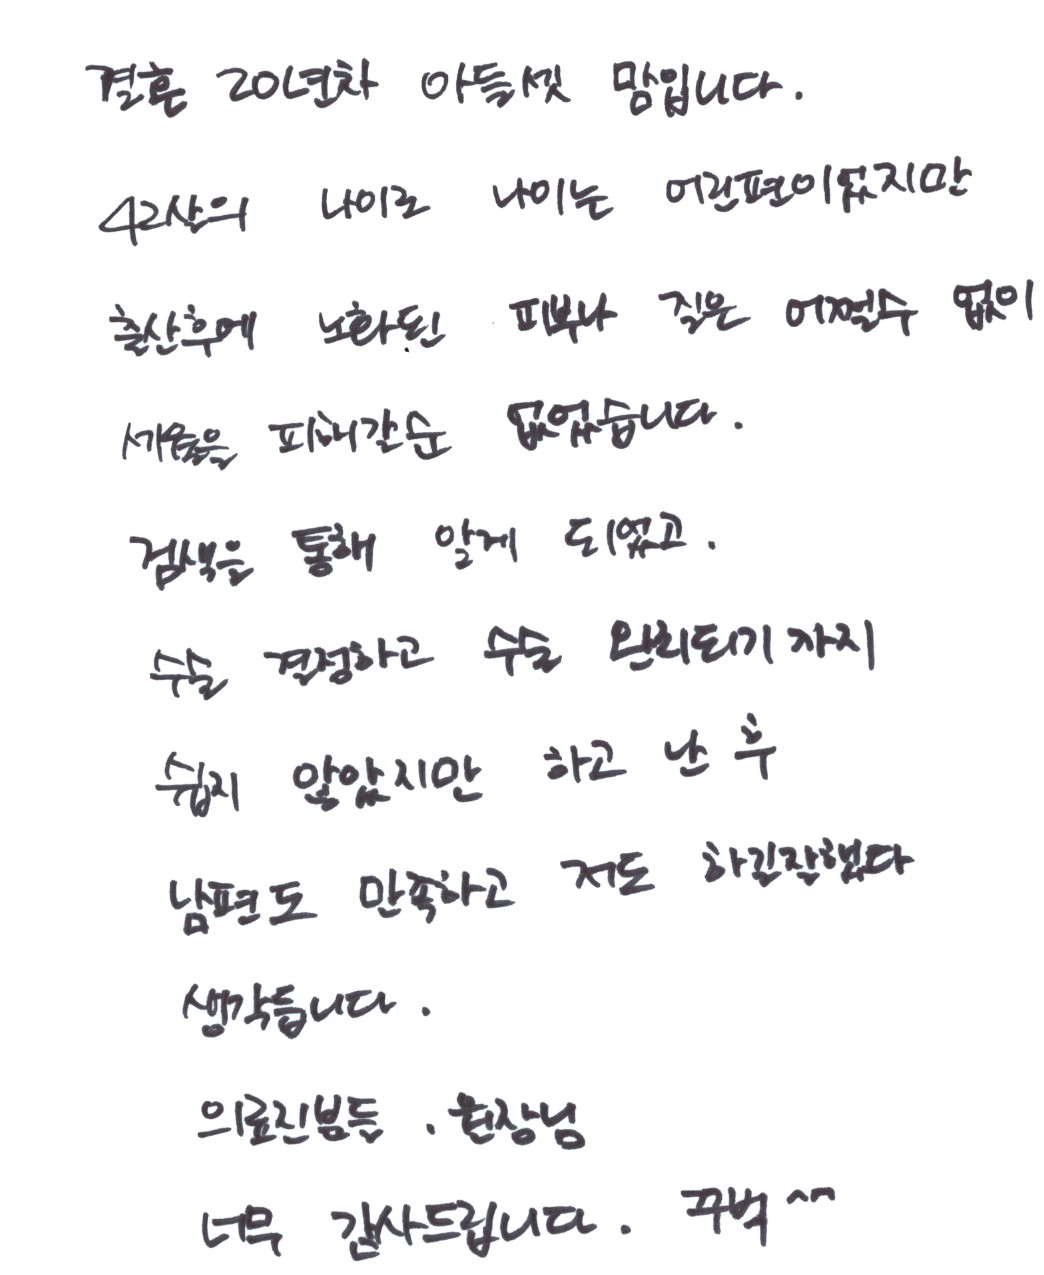 결혼 20년차 아들셋 맘입니다.
42살의 나이로 나이는 어린편이었지만
출산후에 노화된 피부나 질은 어쩔수 없이
세월을 피해갈순 없었습니다.
검색을 통해 알게 되었고.
수술 결정하고 수술 완료되기 까지
쉽지 않았지만 하고 난 후
남편도 만족하고 저도 하길잘했다
생각듭니다.
의료진분들. 원장님
너무 감사드립니다. 꾸벅 ^^